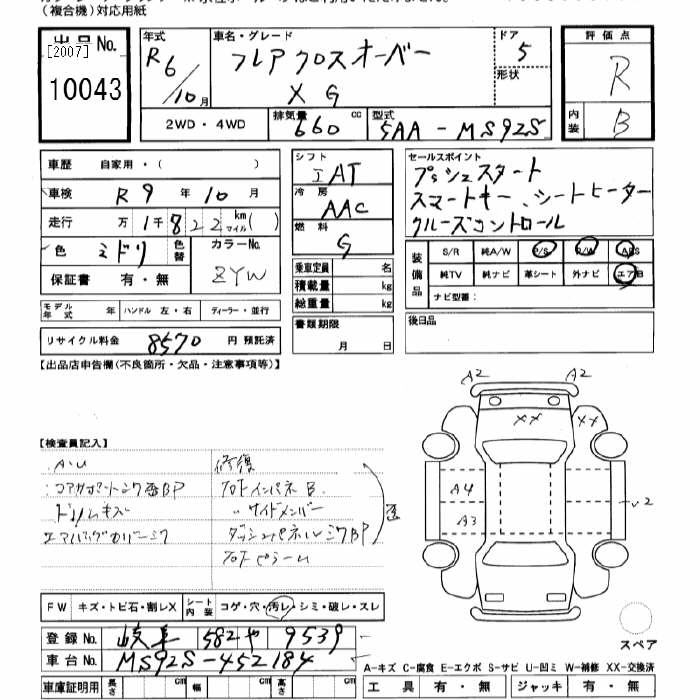 (複合機)対応用紙
出品No.
[2007]
10043
年式
R6/10月
車名・グレード
フレア クロスオーバー
X G
ドア
5
形状
評価点
R
内装
B
2WD・4WD
排気量 660 cc
型式 5AA-MS92S
車歴 自家用・( )
車検 R9年10月
走行 万1千822km マイル( )
色 ミドリ 色替
カラーNo. ZYW
保証書 有・無
モデル年式 年 ハンドル 左・右 ディーラー・並行
リサイクル料金 8570 円 預託済
シフト
IAT
冷房
AAC
燃料
G
乗車定員 名
積載量 kg
総重量 kg
書類期限
月 日
セールスポイント
プッシュスタート
スマートキー、シートヒーター
クルーズコントロール
装備品
S/R 純A/W P/S P/W ABS
純TV 純ナビ 革シート 外ナビ エアB
ナビ型番:
後日品
【出品店申告欄(不良箇所・欠品・注意事項等)】
【検査員記入】
A・U
コアサポートシワ番BP
ドリムキズ
エアバッグカバーシワ
修復
フロトインパネB.
〃サイドメンバー
ダッシュパネルシワBP
フロトピラーム
A2
A2
XX
XX
A4
A3
2
FW キズ・トビ石・割レX
シート内装 コゲ・穴・汚レ・シミ・破レ・スレ
登録No. 岐阜 582や 9539
車台No. MS92S-452184
車庫証明用 長さ cm 幅 cm 高さ cm
スペア
A-キズ C-腐食 E-エクボ S-サビ U-凹ミ W-補修 XX-交換済
工具 有・無 ジャッキ 有・無